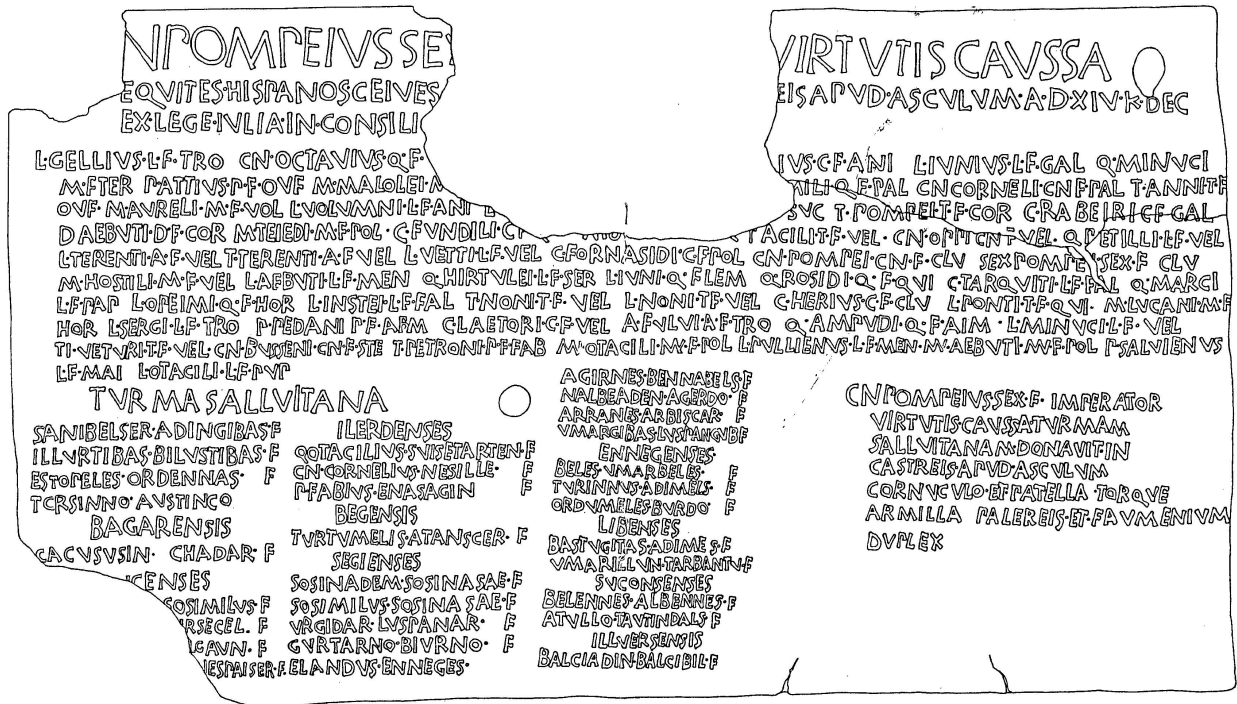 N POMPEIVS SE VIRTVTIS CAVSSA
EQVITES·HISPANOS CEIVES EIS APVD·ASCVLVM·A·D·XIV·K·DEC
EX·LEGE·IVLIA·IN·CONSILI
L·GELLIVS·L·F·TRO CN·OCTAVIVS·Q·F· IVS·C·F·ANI L·IVNIVS·L·F·GAL Q·MINVCI
M·F·TER P·ATTIVS·P·F·OVF M·MALOLEI·M MILI·Q·F·PAL CN CORNELI·CN F·PAL T·ANNI·T·F
OVF·M·AVRELI·M·F·VOL L·VOLVMNI·L·F·ANI SVC T·POMPEI·T·F·COR C·RABEIRI·C·F·GAL
D AEBVTI·D·F·COR M·TEIEDI·M·F·POL·C·FVNDILI·C·F OTACILI·T·F·VEL·CN·OPPI·CN·F·VEL·Q·PETILLI·L·F·VEL
L·TERENTI·A·F·VEL T·TERENTI·A·F VEL L·VETTI·L·F·VEL C·FORNASIDI·C·F·POL CN·POMPEI·CN·F·CLV SEX POMPEI·SEX·F CLV
M·HOSTILI·M·F·VEL L·AEBVTI·L·F·MEN Q·HIRTVLEI·L·F·SER L·IVNI·Q·F LEM Q·ROSIDI·Q·F·QVI C·TARQVITI·L·F·FAL Q·MARCI
L·F·PAP L·OPEIMI·Q·F·HOR L·INSTEI·L·F·FAL T·NONI·T·F·VEL L·NONI·T·F·VEL C·HERIVS·C·F·CLV L·PONTI·T·F·QVI·M·LVCANI·M·F
HOR L·SERGI·L·F·TRO P·PEDANI P·F·AEM C·LAETORI·C·F·VEL A·FVLVI·A·F·TRO Q·AMPVDI·Q·F·AIM·L·MINVCI·L·F·VEL
TI·VETVRI·T·F·VEL·CN·BVSSENI·CN·F·STE T·PETRONI·P·F·FAB M·OTACILI·M·F·POL L·PVLLIENVS·L·F·MEN·M·AEBVTI·M·F·POL P·SALVIENVS
L·F·MAI L·OTACILI·L·F·PVP
TVRMA SALLVITANA
SANIBELSER·ADINGIBAS·F
ILLVRTIBAS·BILVSTIBAS·F
ESTOPELES·ORDENNAS·F
TORSINNO·AVSTINCO
BAGARENSIS
CACVSVSIN·CHADAR·F
CENSES
SOSIMILVS·F
RSECEL·F
GAVN·F
NESPAISER·F
ILERDENSES
Q·OTACILIVS·SVISETARTEN·F
CN·CORNELIVS·NESILLE·F
P·FABIVS·ENASAGIN F
BEGENSIS
TVRTVMELIS·ATANSCER·F
SEGIENSES
SOSINADEM·SOSINASAE·F
SOSIMILVS·SOSINASAE·F
VRGIDAR·LVSPANAR·F
GVRTARNO·BIVRNO·F
ELANDVS·ENNEGES·
AGIRNES·BENNABELS·F
NALBEADEN·AGERDO·F
ARRANES·ARBISCAR·F
VMARGIBAS·LVSPANGVB·F
ENNEGENSES
BELES·VMARBELES·F
TVRINNVS·ADIMELS·F
ORDVMELES·BVRDO·F
LIBENSES
BASTVGITAS·ADIMES·F
VMARILLVN·TARBANTV·F
SVCONSENSES
BELENNES·ALBENNES·F
ATVLLO·TAVTINDALS·F
ILLVERSENSIS
BALCIADIN·BALCIBIL·F
CN·POMPEIVS·SEX·F·IMPERATOR
VIRTVTIS·CAVSSA·TVRMAM
SALLVITANAM·DONAVIT·IN
CASTREIS·APVD·ASCVLVM
CORNVCVLO·ET·PATELLA·TORQVE
ARMILLA PALEREIS·ET·FRVMENTVM
DVPLEX